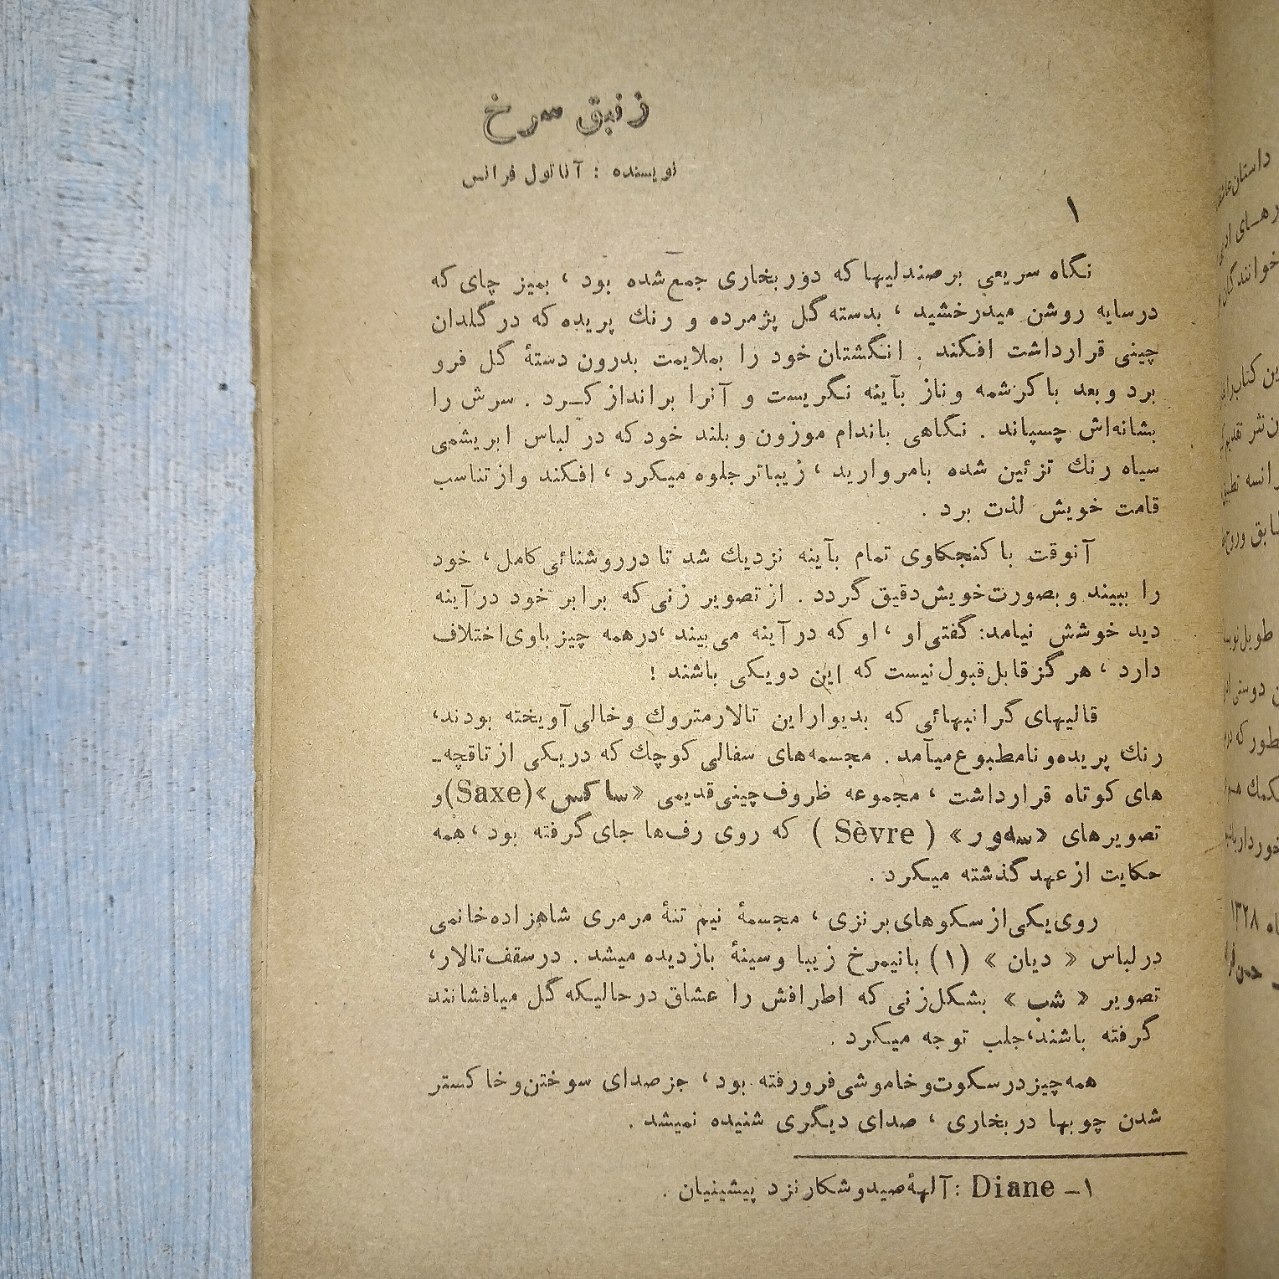 زنبق سرخ
نویسنده : آناتول فرانس
۱
نگاه سریعی بر صندلیها که دور بخاری جمع شده بود ، بمیز چای که
در سایه روشن میدرخشید ، بدسته گل پژمرده و رنك پریده که در گلدان
چینی قرار داشت افکند . انگشتان خود را بملایمت بدرون دستهٔ گل فرو
برد و بعد با کرشمه و ناز بآینه نگریست و آنرا برانداز کرد . سرش را
بشانه‌اش چسپاند . نگاهی باندام موزون و بلند خود که در لباس ابریشمی
سیاه رنك تزئین شده بامروارید ، زیباتر جلوه میکرد ، افکند و از تناسب
قامت خویش لذت برد .
آنوقت با کنجکاوی تمام بآینه نزدیك شد تا در روشنائی کامل ، خود
را ببیند و بصورت خویش دقیق گردد . از تصویر زنی که برابر خود در آینه
دید خوشش نیامد: گفتی او ، او که در آینه می‌بیند ،درهمه چیز باوی اختلاف
دارد ، هر گز قابل قبول نیست که این دو یکی باشند !
قالیهای گرانبهائی که بدیوار این تالار متروك و خالی آویخته بودند،
رنك پریده و نامطبوع میآمد . مجسمه‌های سفالی کوچك که در یکی از تاقچه-
های کوتاه قرار داشت ، مجموعه ظروف چینی قدیمی «ساکس»(Saxe)و
تصویرهای «سه‌ور» ( Sèvre ) که روی رف‌ها جای گرفته بود ،همه
حکایت از عهد گذشته میکرد .
روی یکی از سکوهای برنزی ، مجسمهٔ نیم تنهٔ مرمری شاهزاده خانمی
در لباس « دیان » (۱) بانیمرخ زیبا و سینهٔ باز دیده میشد . در سقف تالار،
تصویر « شب » بشکل زنی که اطرافش را عشاق در حالیکه گل میافشانند
گرفته باشند،جلب توجه میکرد .
همه چیز در سکوت و خاموشی فرو رفته بود ، جز صدای سوختن و خاکستر
شدن چوبها در بخاری ، صدای دیگری شنیده نمیشد .
۱- Diane :آلههٔ صید و شکار نزد پیشینیان .
داستان
خوانندگان
این کتاب
۱۳۲۸